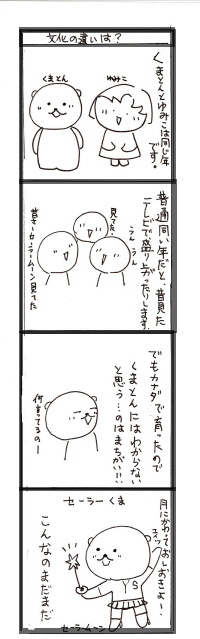 文化の違いは？
くまとんとゆみこは同じ年です。
ゆみこ
くまとん
普通同い年だと、昔見た
テレビで盛り上がったりします。
見てた
うん
うん
昔さーセーラームーン見てた
でもカナダで育ったので
くまとんにはわからない
と思う…のはまちがい!!
何言ってるのー
月にかわっておしおきよー!
セーラーくま
こんなのまだまだ
セーラームーン